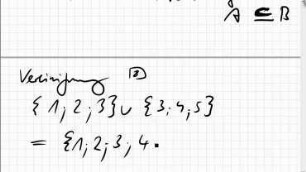 A ⊆ B
Vereinigung [2]
{1; 2; 3} ∪ {3; 4; 5}
= {1; 2; 3; 4.